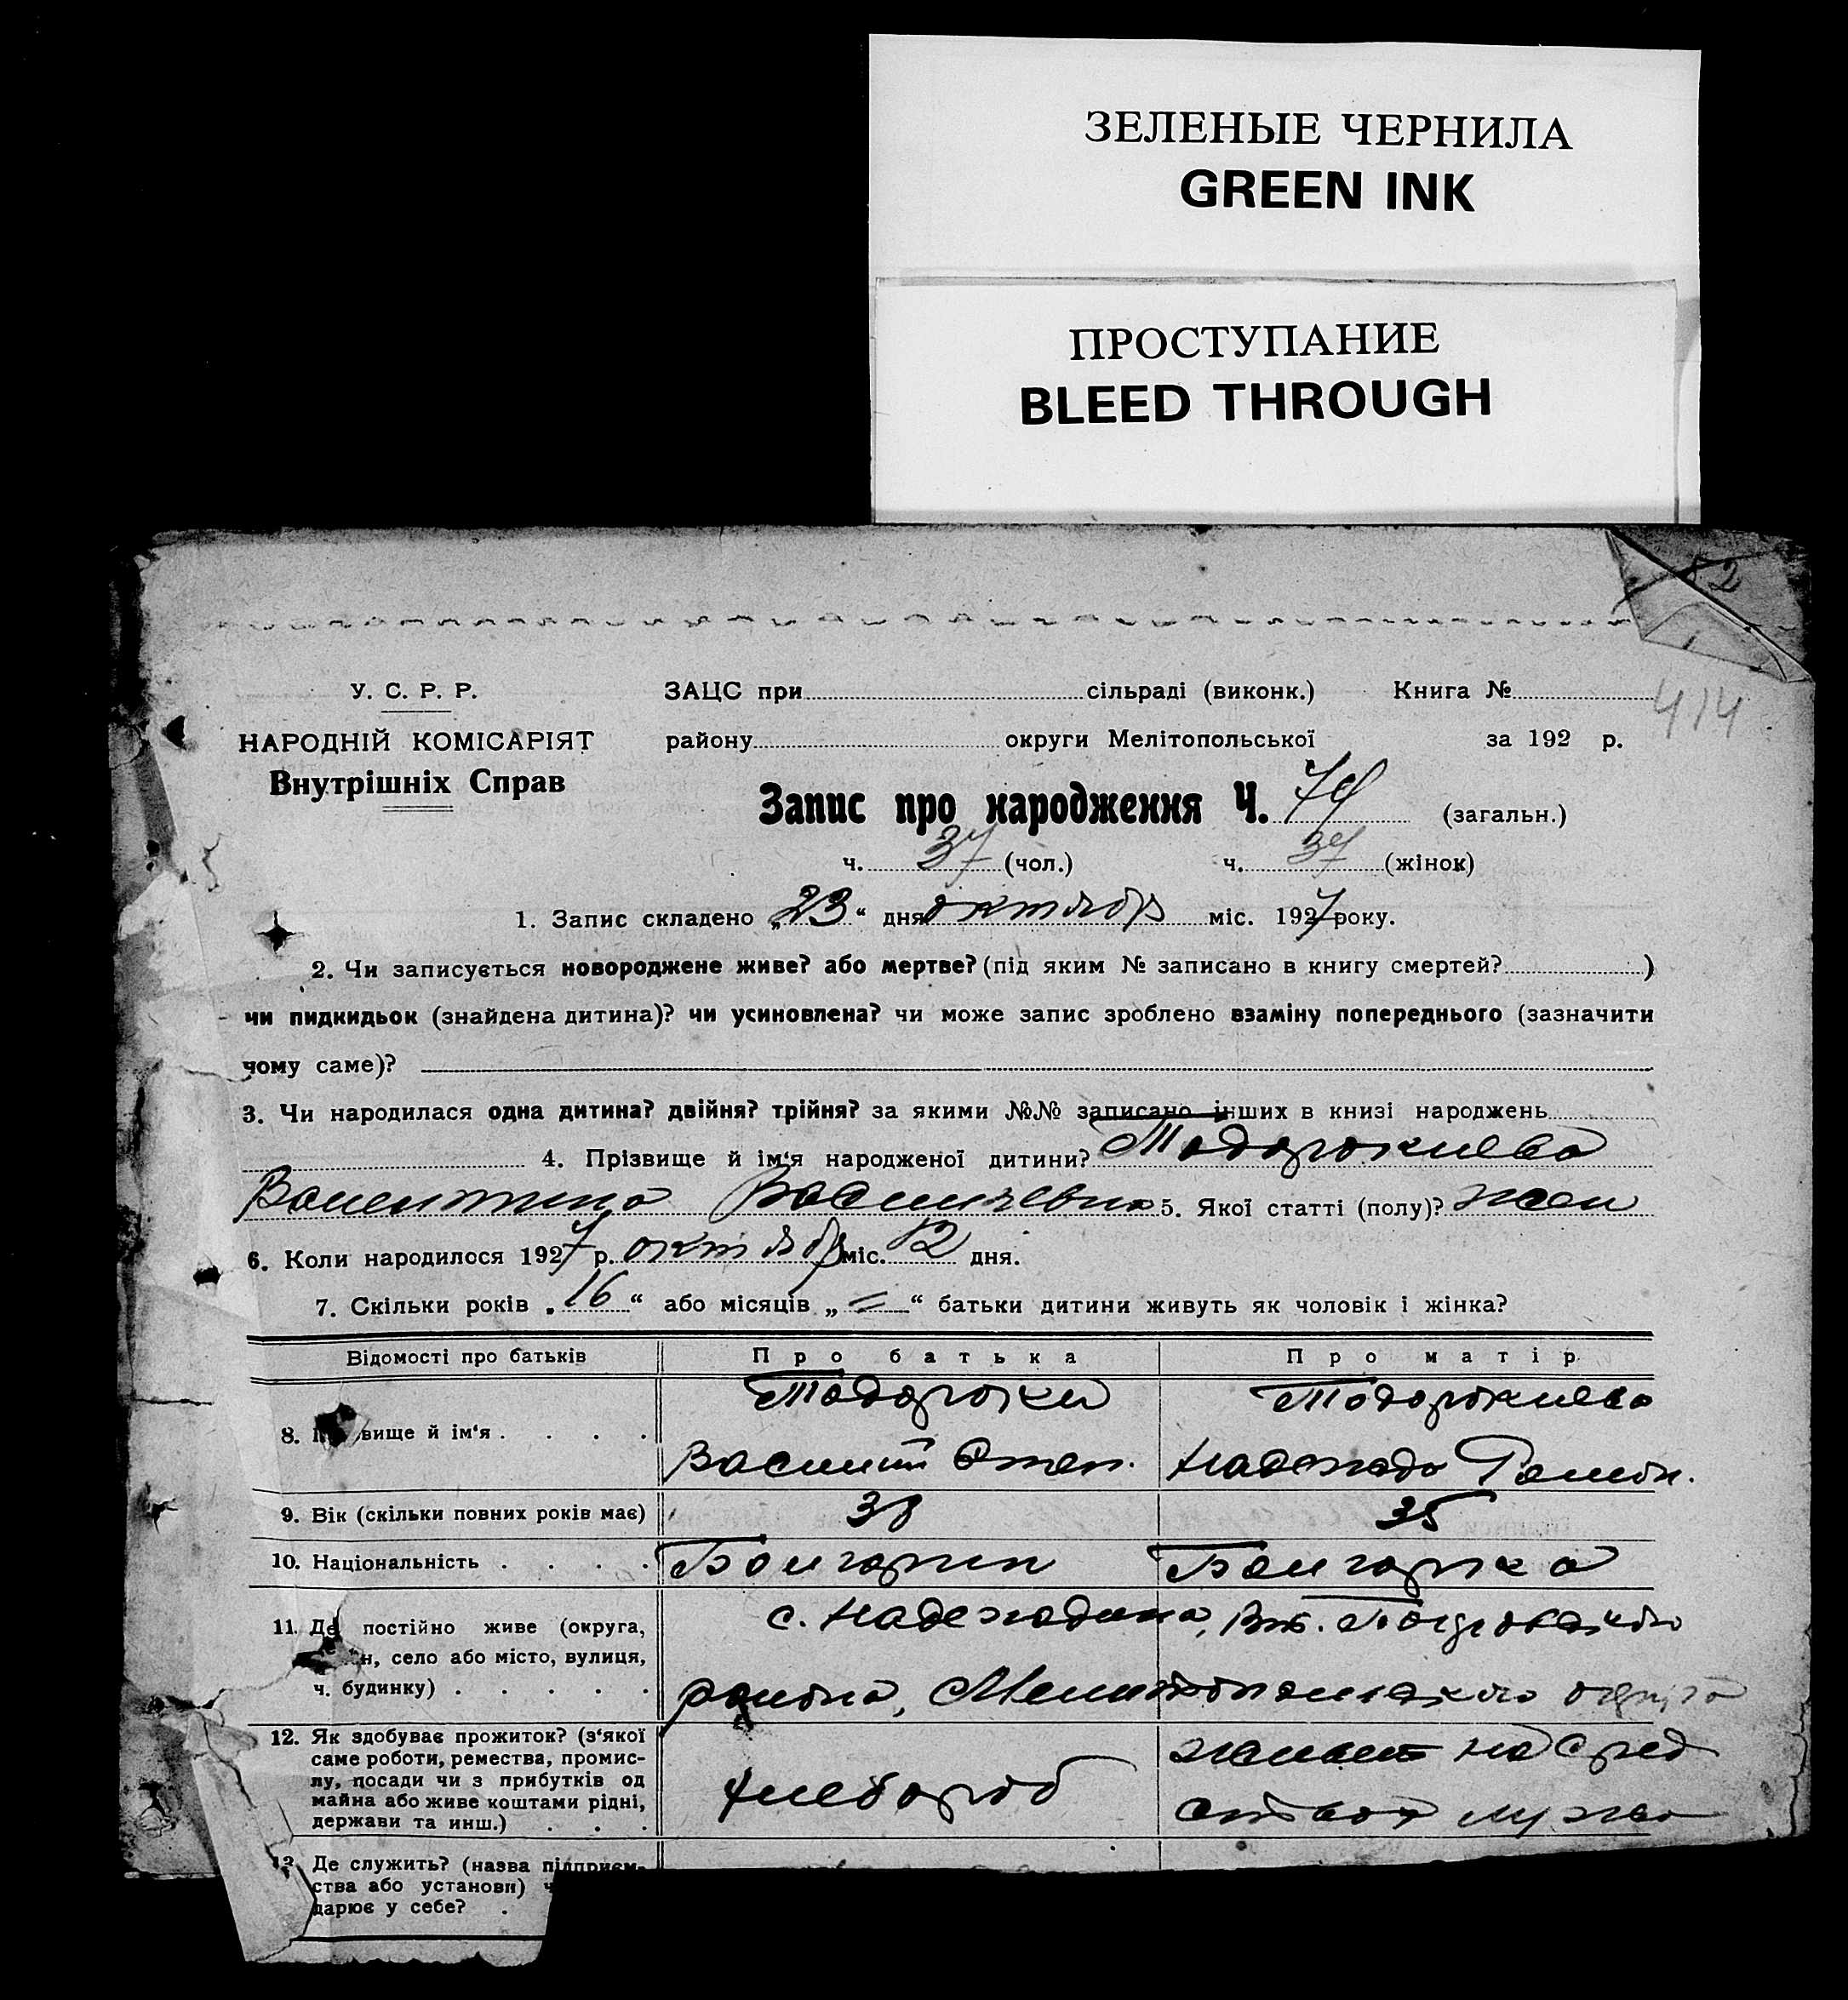 ЗЕЛЕНЫЕ ЧЕРНИЛА
GREEN INK
ПРОСТУПАНИЕ
BLEED THROUGH
52
У. С. Р. Р. ЗАЦС при сільраді (виконк.) Книга № 414
НАРОДНІЙ КОМІСАРІЯТ району округи Мелітопольської за 192 р.
Внутрішніх Справ
Запис про народження Ч. 74 (загальн.)
ч. 37 (чол.) ч. 37 (жінок)
1. Запис складено „23“ дня октября міс. 1927 року.
2. Чи записується новороджене живе? або мертве? (під яким № записано в книгу смертей? )
чи пидкидьок (знайдена дитина)? чи усиновлена? чи може запис зроблено взаміну попереднього (зазначити
чому саме)?
3. Чи народилася одна дитина? двійня? трійня? за якими №№ записано інших в книзі народжень
4. Прізвище й ім‘я народженої дитини? Тодорокиева
Валентина Васильевна 5. Якої статті (полу)? жен
6. Коли народилося 1927 р. октября міс. 12 дня.
7. Скільки років „16“ або місяців „=“ батьки дитини живуть як чоловік і жінка?
Відомості про батьків Про батька Про матір
Тодороки Тодорокиева
8. вище й ім‘я . . . . Василий Степ. Надежда
9. Вік (скільки повних років має) 38 35
10. Національність . . . . Болгарин Болгарка
11. Де постійно живе (округа, с. Надеждина,
н, село або місто, вулиця,
ч. будинку) . . . . . района, Мелитопольского округа
12. Як здобуває прожиток? (з‘якої
саме роботи, ремества, промис-
лу, посади чи з прибутків од
майна або живе коштами рідні,
держави та инш.) . . . хлебороб на сред
ства мужа
13. Де служить? (назва підприєм-
ства або установи) ч
дарює у себе? .